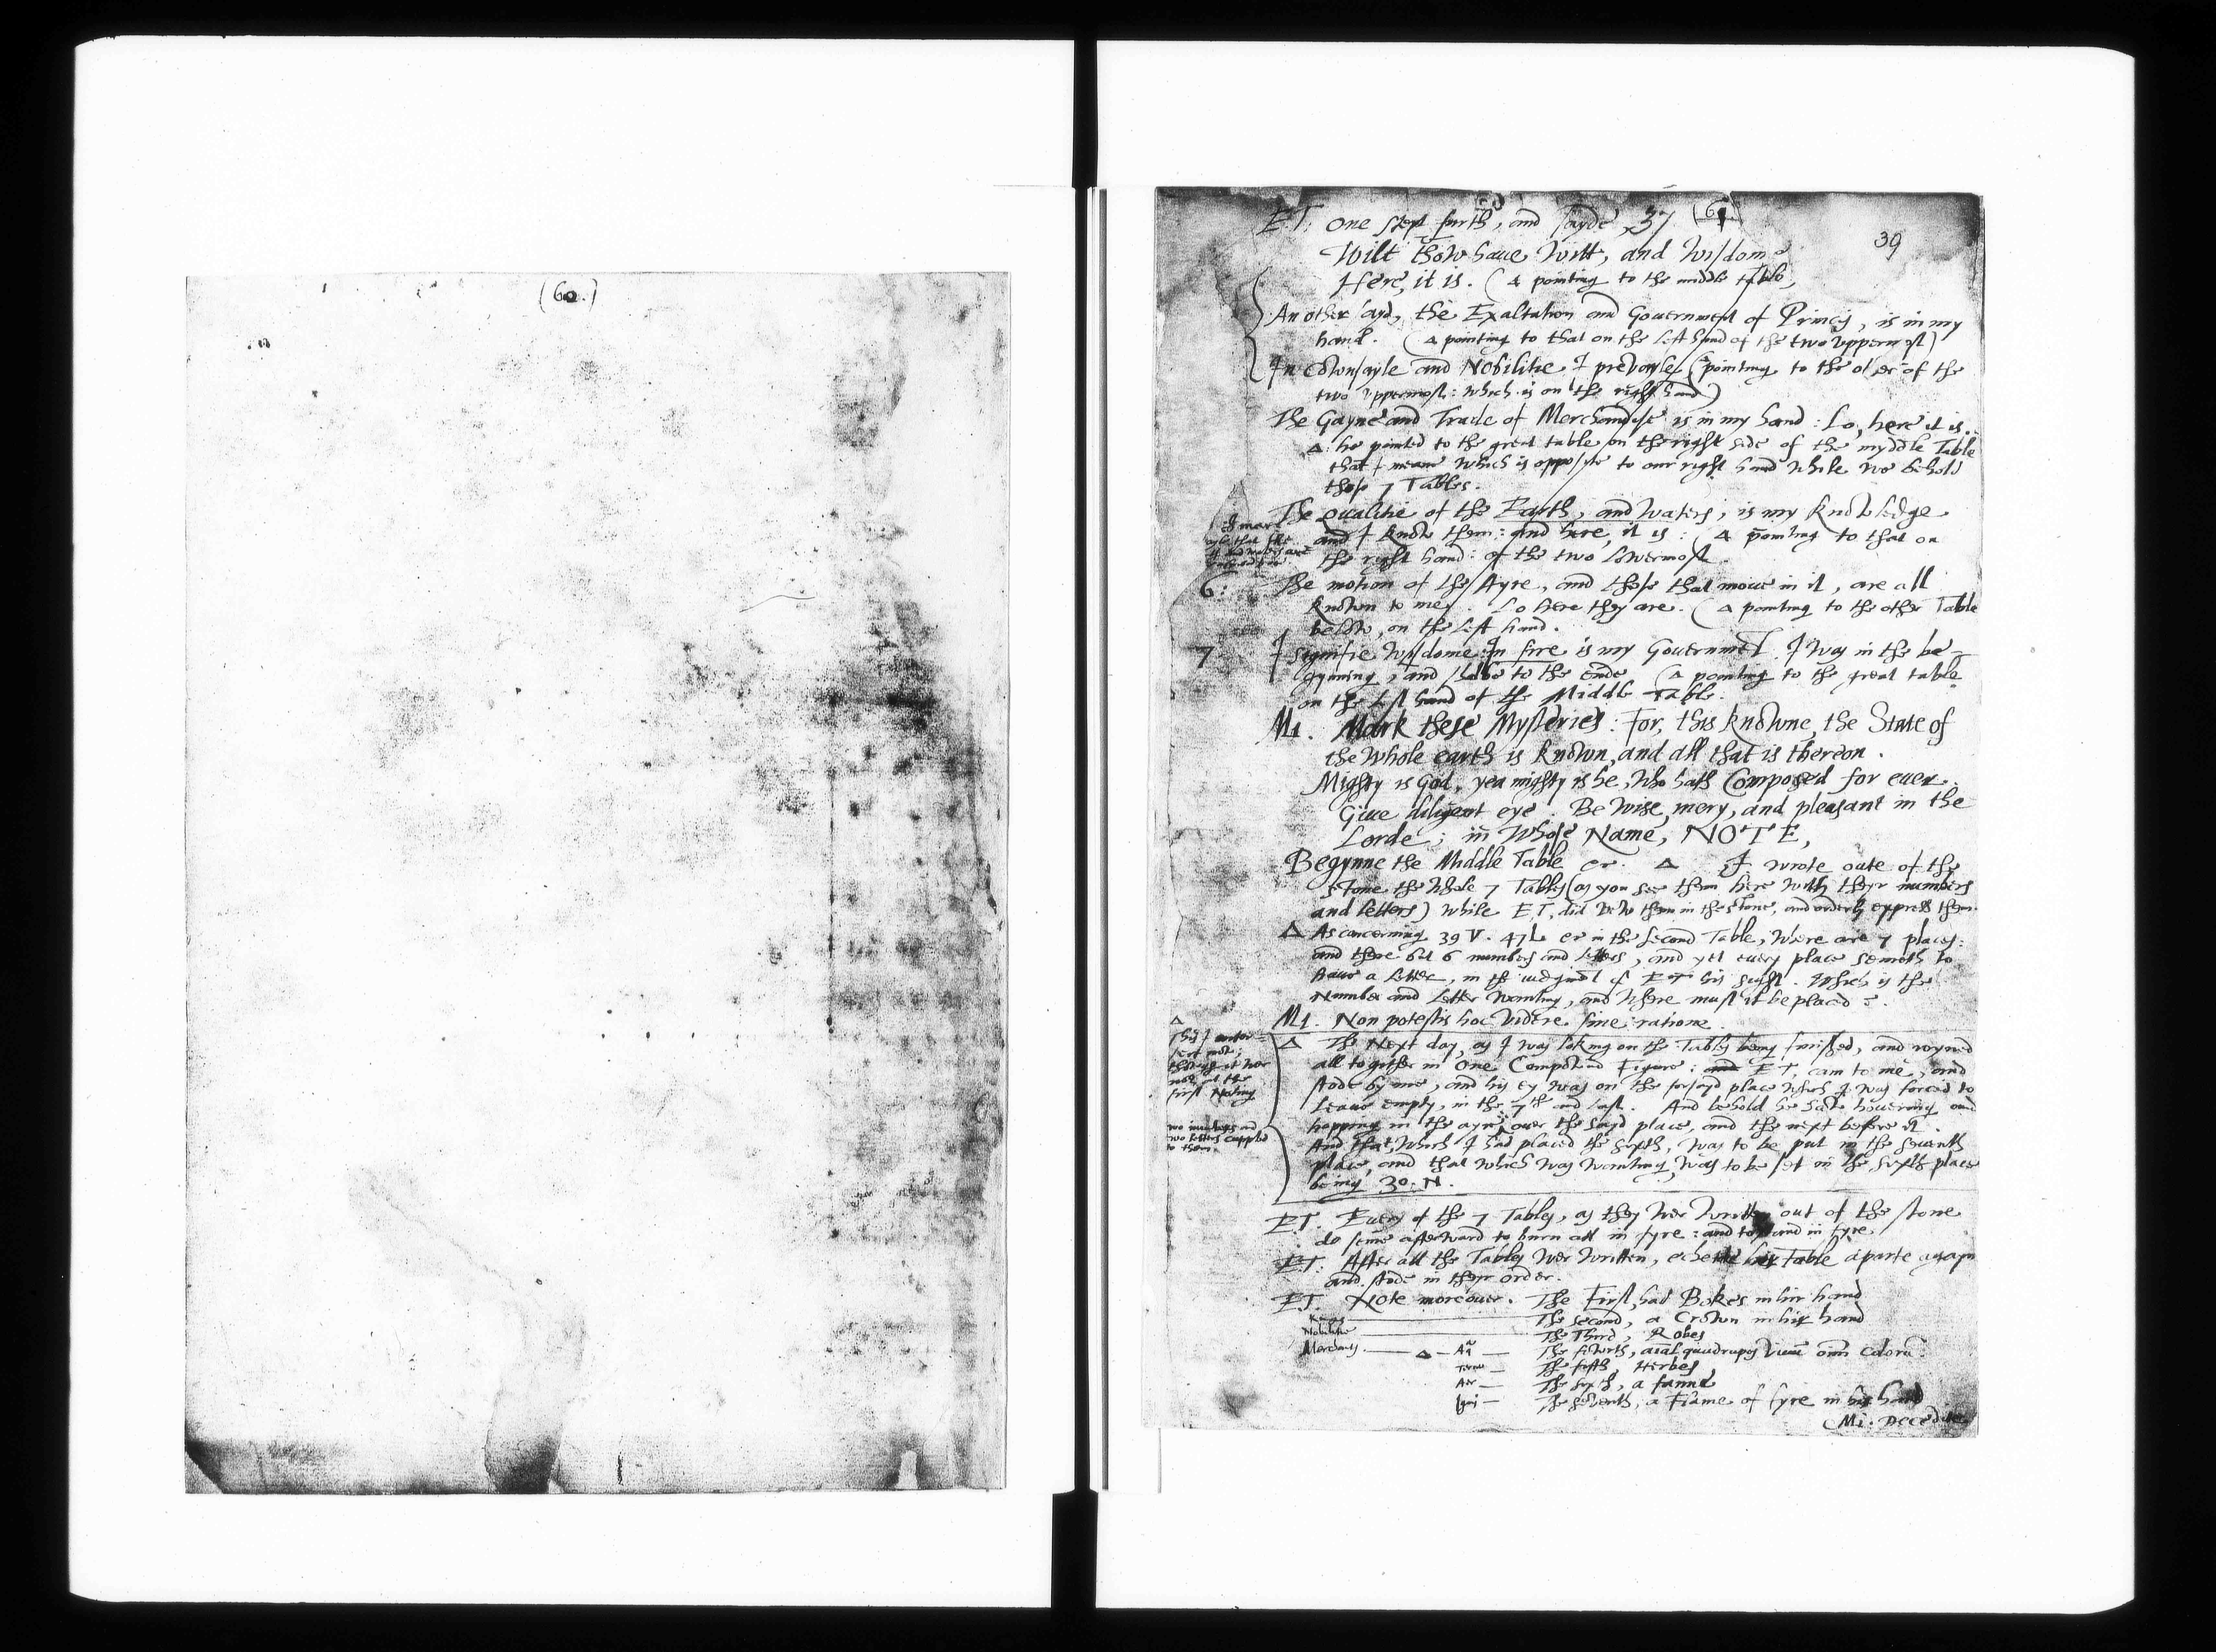 (60.)
(61)
39
E.T. One stept furth, and sayde, 37
Wilt thow haue witt, and wisdome
Here, it is. (Δ pointing to the middle table)
Another sayd, the Exaltation and Gouernment of Princis, is in my
hand. (Δ pointing to that on the left hand of the two vppermost)
In cownsayle and Nobilitie I prevayle (pointing to the other of the
two vppermost: which is on the right hand)
The Gayne and Trade of Merchandise is in my hand: Lo, here it is.
Δ he pointed to the great table on the right side of the myddle Table
that I meane which is opposite to our right hand while we behold
those 7 Tables.
The Qualitie of the Earth, and waters, is my knowledge
and I know them: and here, it is: (Δ pointing to that on
the right hand: of the two lowermost
6: The motion of the Ayre, and those that moue in it, are all
known to me. Lo here they are. (Δ pointing to the other Table
below, on the left hand.
7 I signifie Wysdome: In fire is my Gouernment. I was in the be-
gynning, and shalbe to the ende (Δ pointing to the great table
on the left hand of the Middle Table.
Mi. Mark these Mysteries: For, this knowne, the State of
the whole earth is known, and all that is thereon.
Mighty is God, yea mighty is he, Who hath Composed for euer.
Giue diligent eye. Be wise, mery, and pleasant in the
Lorde; in Whose Name, NOTE,
Begynne the Middle Table &c. Δ I wrote oute of the
stone the whole 7 Tables (as you see them here with theyr numbers
and letters) while E.T. did vew them in the stone, and orderly express them.
Δ As concerning 39 V. 47 L &c in the second Table, where are 7 places:
and there but 6 numbers and letters, and yet euery place semeth to
haue a letter, in the iudgment of E T his sight. Which is the
Number and letter wanting, and where must it be placed?
Mi. Non potestis hoc videre sine ratione.
Δ The Next day, as I was loking on the Tables being finished, and ioyned
all to gither in One Compownd Figure: E.T. cam to me, and
stode by me, and his ey was on the forsayd place which I was forced to
leaue empty, in the 7th and last. And behold he saw houering and
hopping in the ayre over the sayd place, and the next before it.
And that, which I had placed the sixth, was to be put in the seuenth
place, and that which was wanting, was to be set in the sixth place
being 30. N.
Δ
This I
not;
though it wer
not at the
first Noting
two numbers and
two letters
to them.
E.T. Euery of the 7 Tables, as they wer written out of the stone
do seme afterward to burn all in fyre: and to stand in fyre
E.T. After all the Tables wer written, eche Table aparte agayn
and stode in theyr order.
E.T. Note moreouer. The First, had Bokes in his hand
Kings The second, a Crown in his hand
Nobilitie The Third, Robes
Δ The fowrth, animal quadrupes viuum omnium colorum.
Terra The fifth, Herbes
Aer The sixth, a fanne
Ignis The Seuenth, a Flame of fyre in his hand
Mi. Decedite